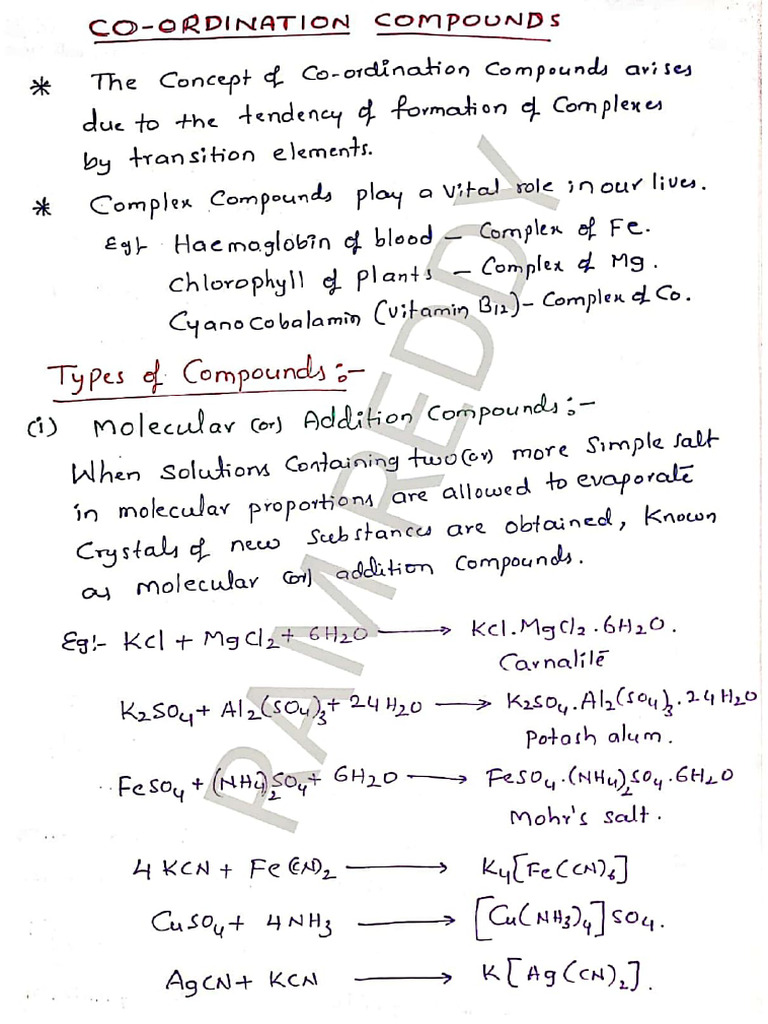 CO-ORDINATION COMPOUNDS
* The Concept of Co-ordination Compounds arises
due to the tendency of formation of Complexes
by transition elements.
* Complex Compounds play a vital role in our lives.
Eg:- Haemaglobin of blood – Complex of Fe.
Chlorophyll of Plants – Complex of Mg.
Cyanocobalamin (Vitamin B12) – Complex of Co.
Types of Compounds:-
(i) Molecular (or) Addition Compounds:-
When Solutions Containing two (or) more Simple Salt
in molecular proportions are allowed to evaporate
Crystals of new Substances are obtained, Known
as molecular (or) addition Compounds.
Eg:- KCl + MgCl2 + 6H2O → KCl.MgCl2.6H2O.
Carnalite
K2SO4 + Al2(SO4)3 + 24H2O → K2SO4.Al2(SO4)3.24H2O
Potash alum.
FeSO4 + (NH4)2SO4 + 6H2O → FeSO4.(NH4)2SO4.6H2O
Mohr's Salt.
4KCN + Fe(CN)2 → K4[Fe(CN)6]
CuSO4 + 4NH3 → [Cu(NH3)4]SO4.
AgCN + KCN → K[Ag(CN)2].
RAM REDDY